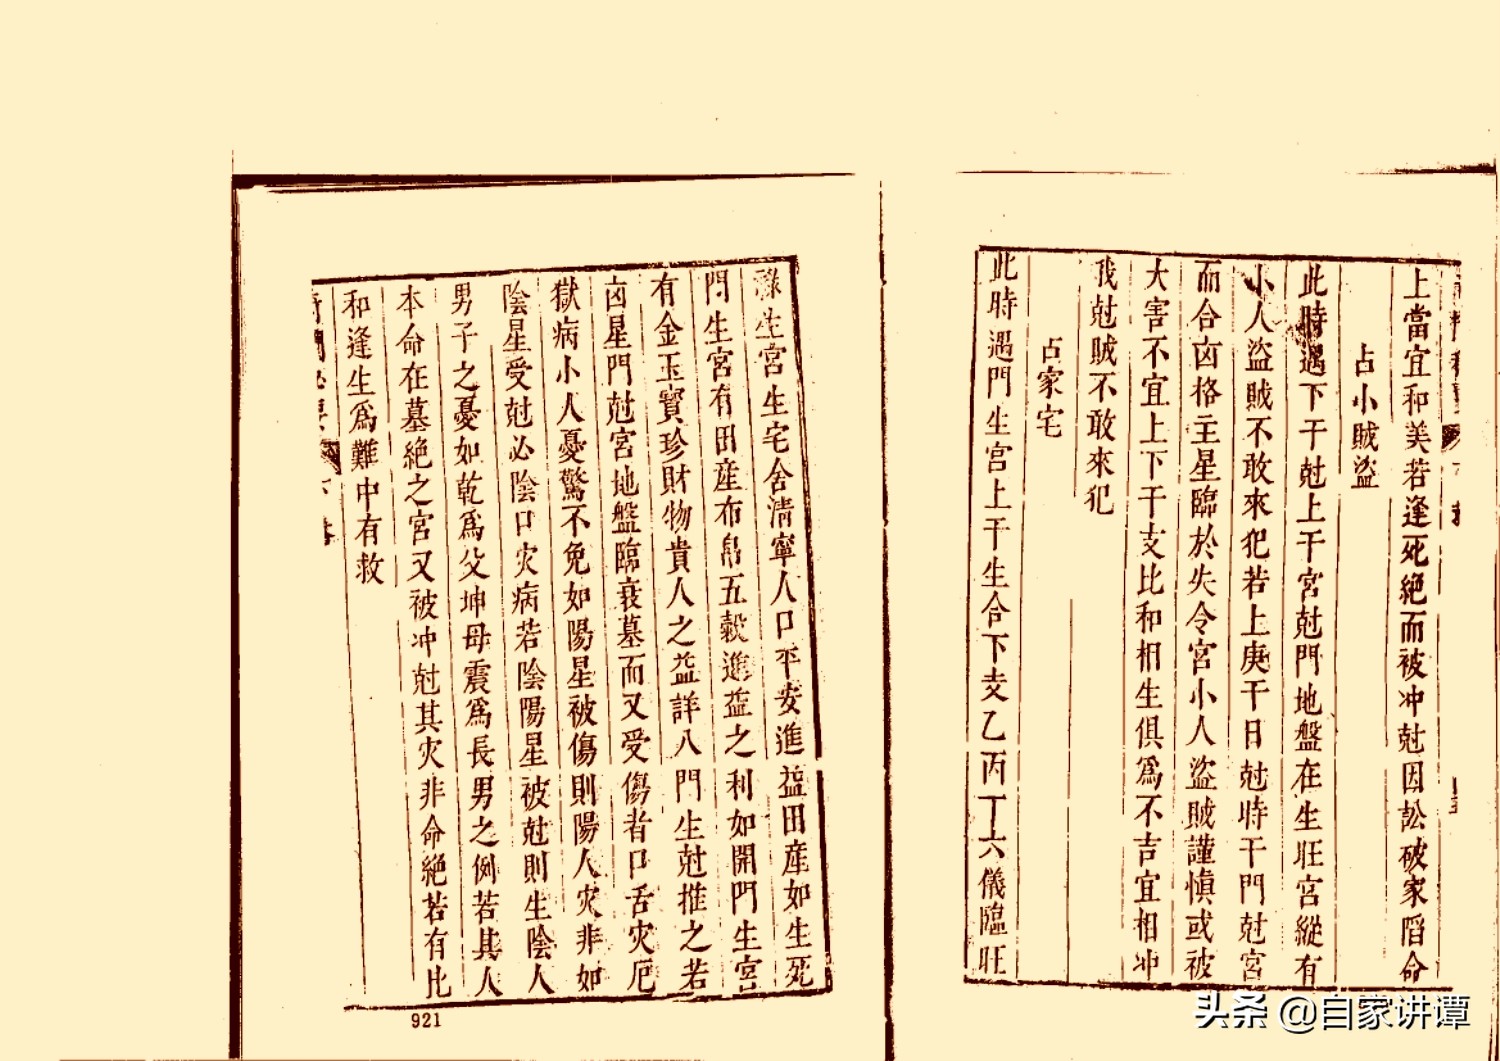 上當宜和美若逢死絕而被冲尅因訟破家陷命
占小賊盜
此時遇下干尅上干宮尅門地盤在生旺宮縱有
小人盜賊不敢來犯若上庚干日尅時干門尅宮
而合凶格主星臨於失令宮小人盜賊謹慎或被
大害不宜上下干支比和相生俱爲不吉宜相冲
我尅賊不敢來犯
占家宅
此時遇門生宮上干生合下支乙丙丁六儀臨旺
祿生宮生宅舍清寧人口平安進益田産如生死
門生宮有田産布帛五穀進益之利如開門生宮
有金玉寳珍財物貴人之益詳八門生尅推之若
凶星門尅宮地盤臨衰墓而又受傷者口舌灾厄
獄病小人憂驚不免如陽星被傷則陽人灾非如
陰星受尅必陰口灾病若陰陽星被尅則生陰人
男子之憂如乾爲父坤母震爲長男之例若其人
本命在墓絕之宮又被冲尅其灾非命絕若有比
和逢生爲難中有救
921
头条 @自家讲谭